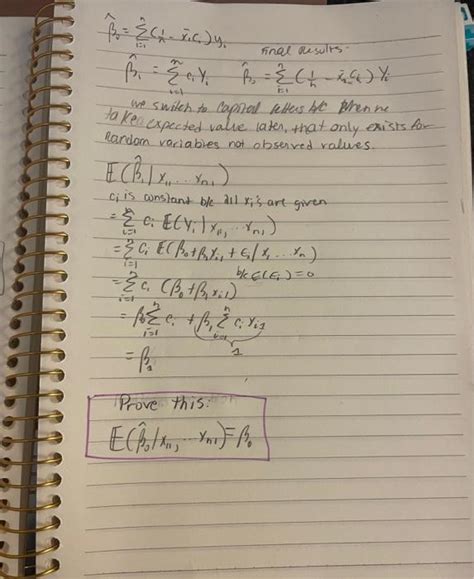 β̂₀ = Σᵢ₌₁ⁿ (1/n - x̄₁cᵢ) yᵢ
Final results.
β̂₁ = Σᵢ₌₁ⁿ cᵢ Yᵢ β̂₀ = Σᵢ₌₁ⁿ (1/n - x̄₁cᵢ) Yᵢ
we switch to capital letters b/c when we
take expected value later, that only exists for
Random variables not observed values.
E(β̂₁ | x₁₁ ... xₙ₁)
cᵢ is constant b/c all xᵢ's are given
= Σᵢ₌₁ⁿ cᵢ E(Yᵢ | x₁₁, ... xₙ₁)
= Σᵢ₌₁ⁿ cᵢ E(β₀ + β₁xᵢ₁ + εᵢ | x₁ ... xₙ)
b/c E(εᵢ) = 0
= Σᵢ₌₁ⁿ cᵢ (β₀ + β₁xᵢ₁)
= β₀ Σᵢ₌₁ⁿ cᵢ + β₁ Σᵢ₌₁ⁿ cᵢ xᵢ₁
1
= β₁
Prove this:
E(β̂₀ | x₁₁, ... xₙ₁) = β₀